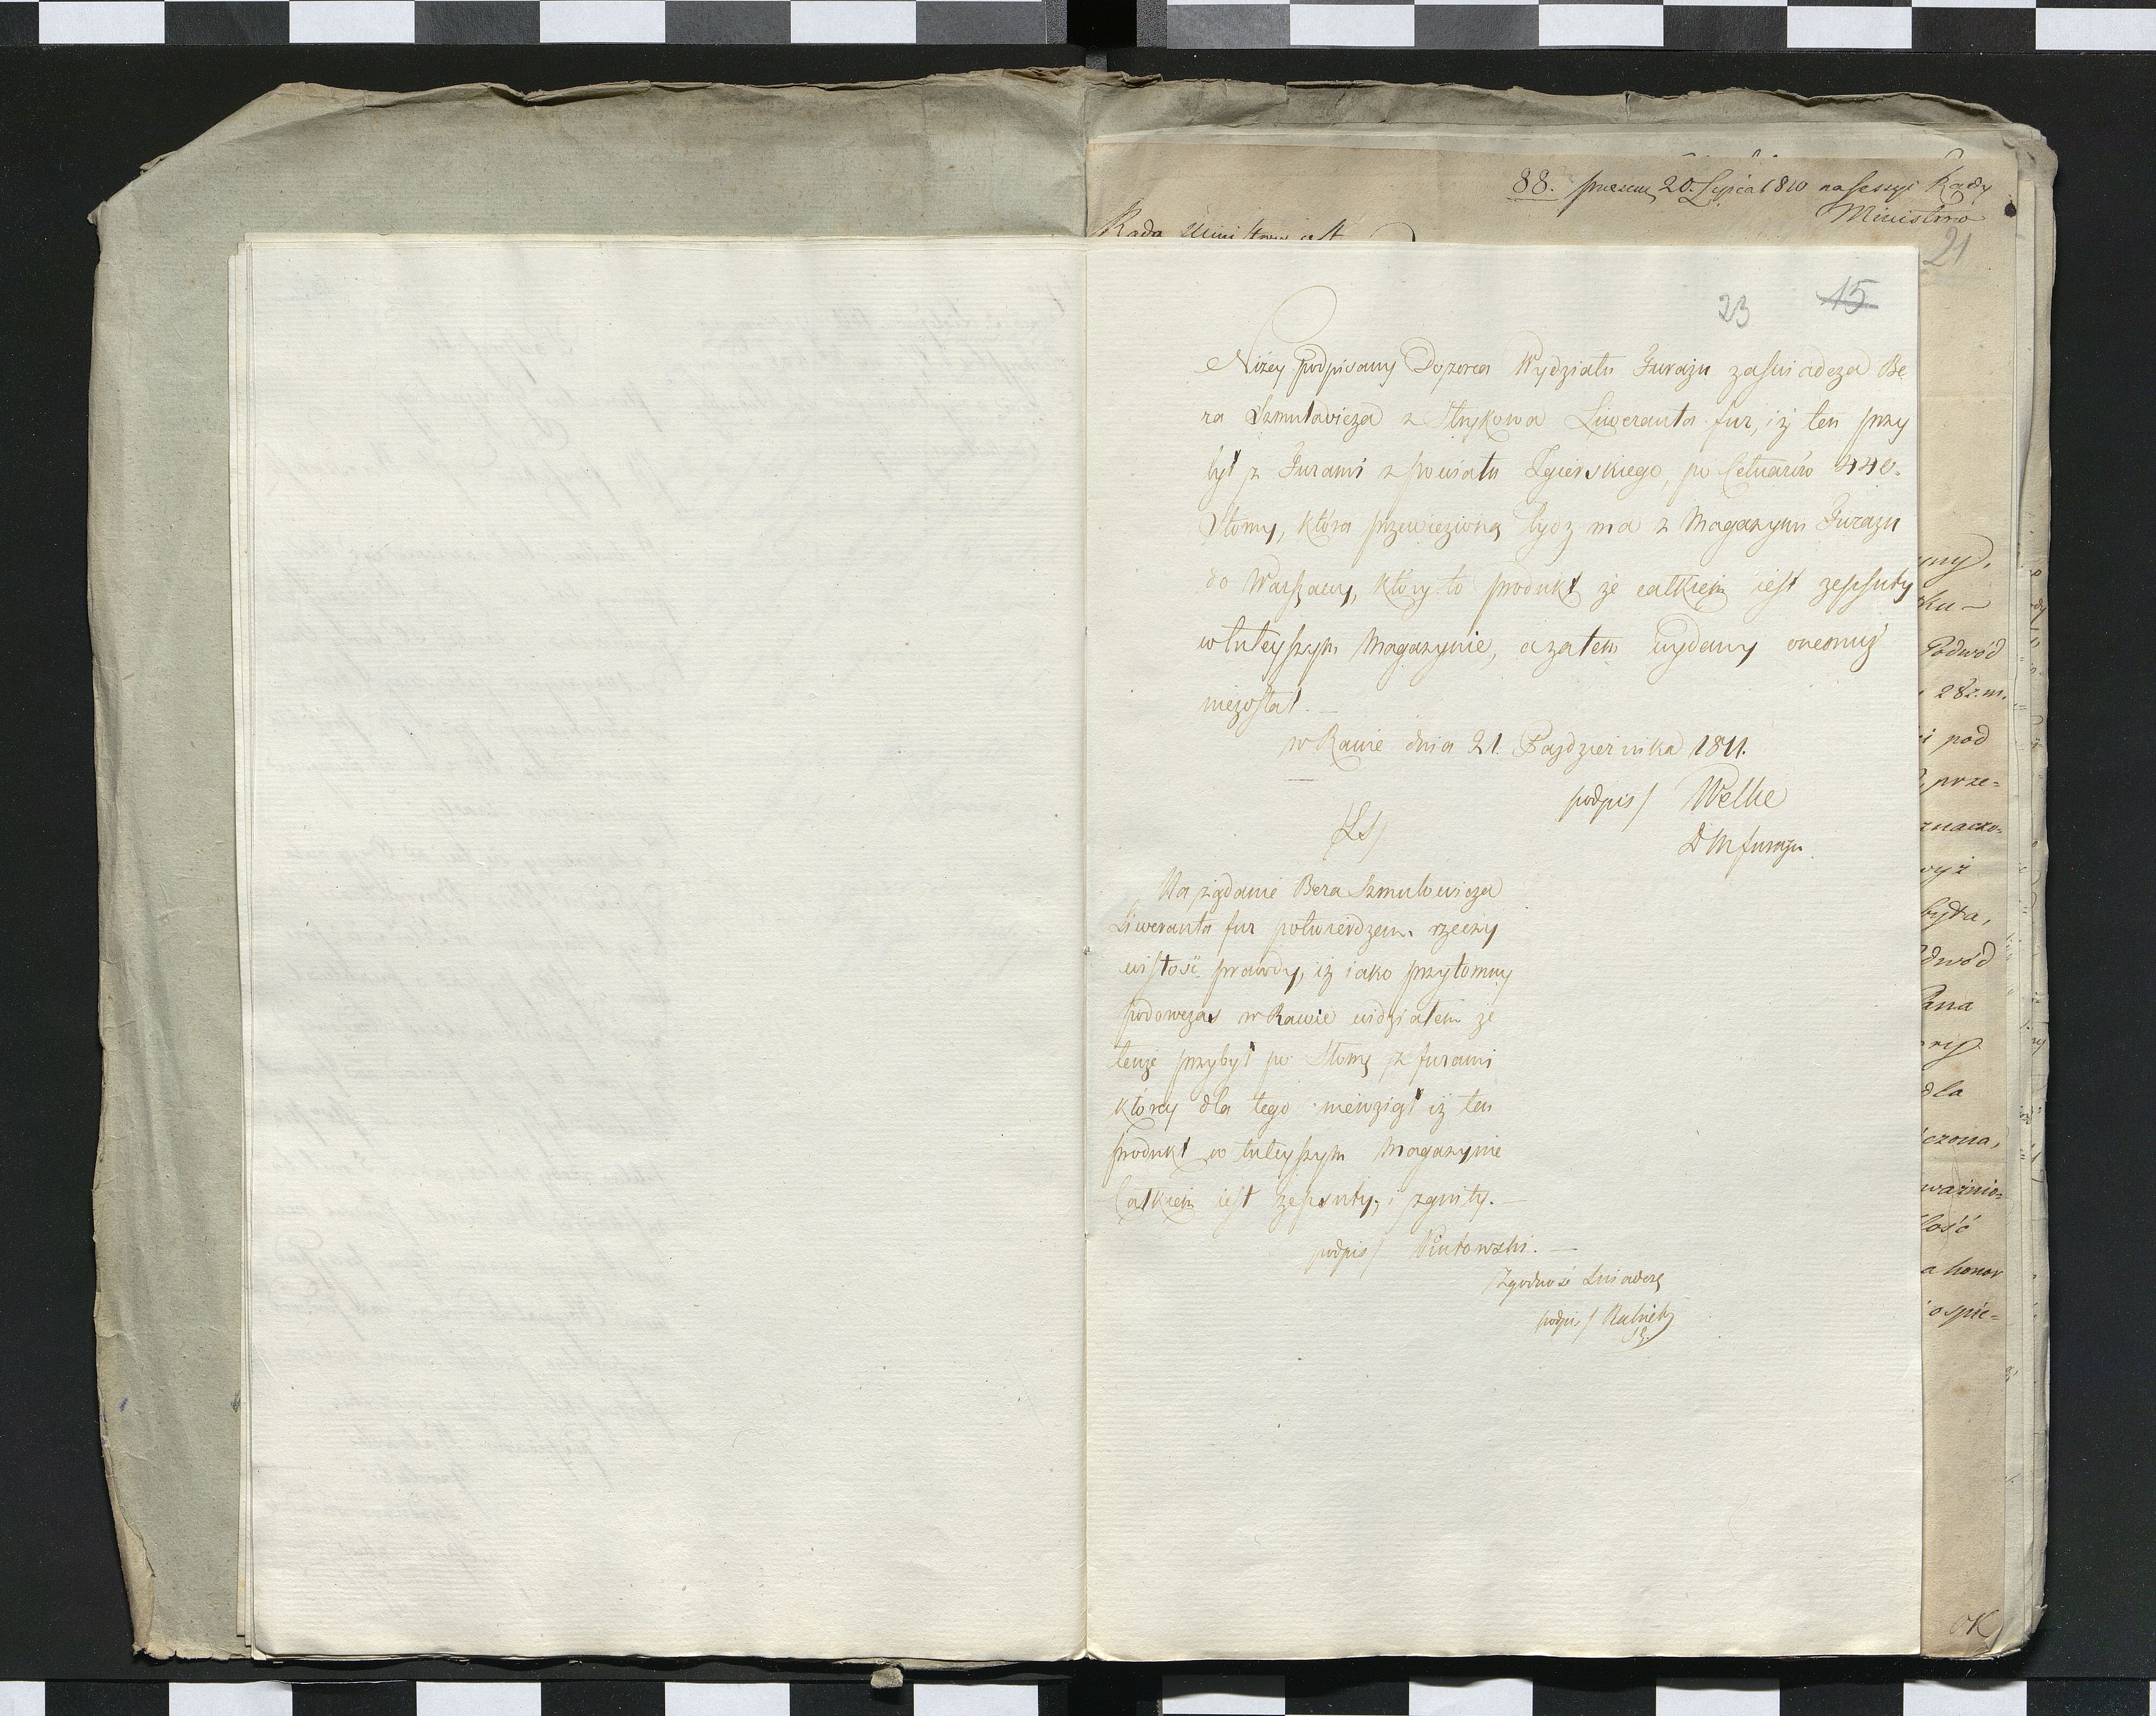 88. 20. Lipca 1810 na Sessyi Rady
Ministrow
21
Rada
23 15
Niżey podpisany Dozorca Wydziału Furażu zaświadcza Be
ra Szmulowicza z Strykowa Liweranta fur, iż ten przy
był z Furami z powiatu Zgierskiego, po Cetnarów 440.
Słomy, która przewiezioną bydź ma z Magazynu Furażu
do Warszawy, który to produkt że całkiem iest zepsuty
w tuteyszym Magazynie, a zatem wydany onemuż
niezostał. —
w Rawie dnia 21. Października 1811.
podpis/ Welke
/LS/ D M furażu
Na żądanie Bera Szmulowicza
Liweranta fur potwierdzam rzeczy
wistość prawdy, iż iako przytomny
podowczas w Rawie widziałem że
tenże przybył po Słomę z furami
który dla tego niewziął iż ten
produkt w tuteyszym Magazynie
Całkiem iest zepsuty, i zgniły. —
podpis/ Wintowski. —
Zgodność Świadczę
podpis/
ny.
tku-
Podwód
28. m.
i pod
prze=
znaczo=
wyż
była,
dwód
Pana
dla
czona,
ważnio=
łość
a honor
ospie=